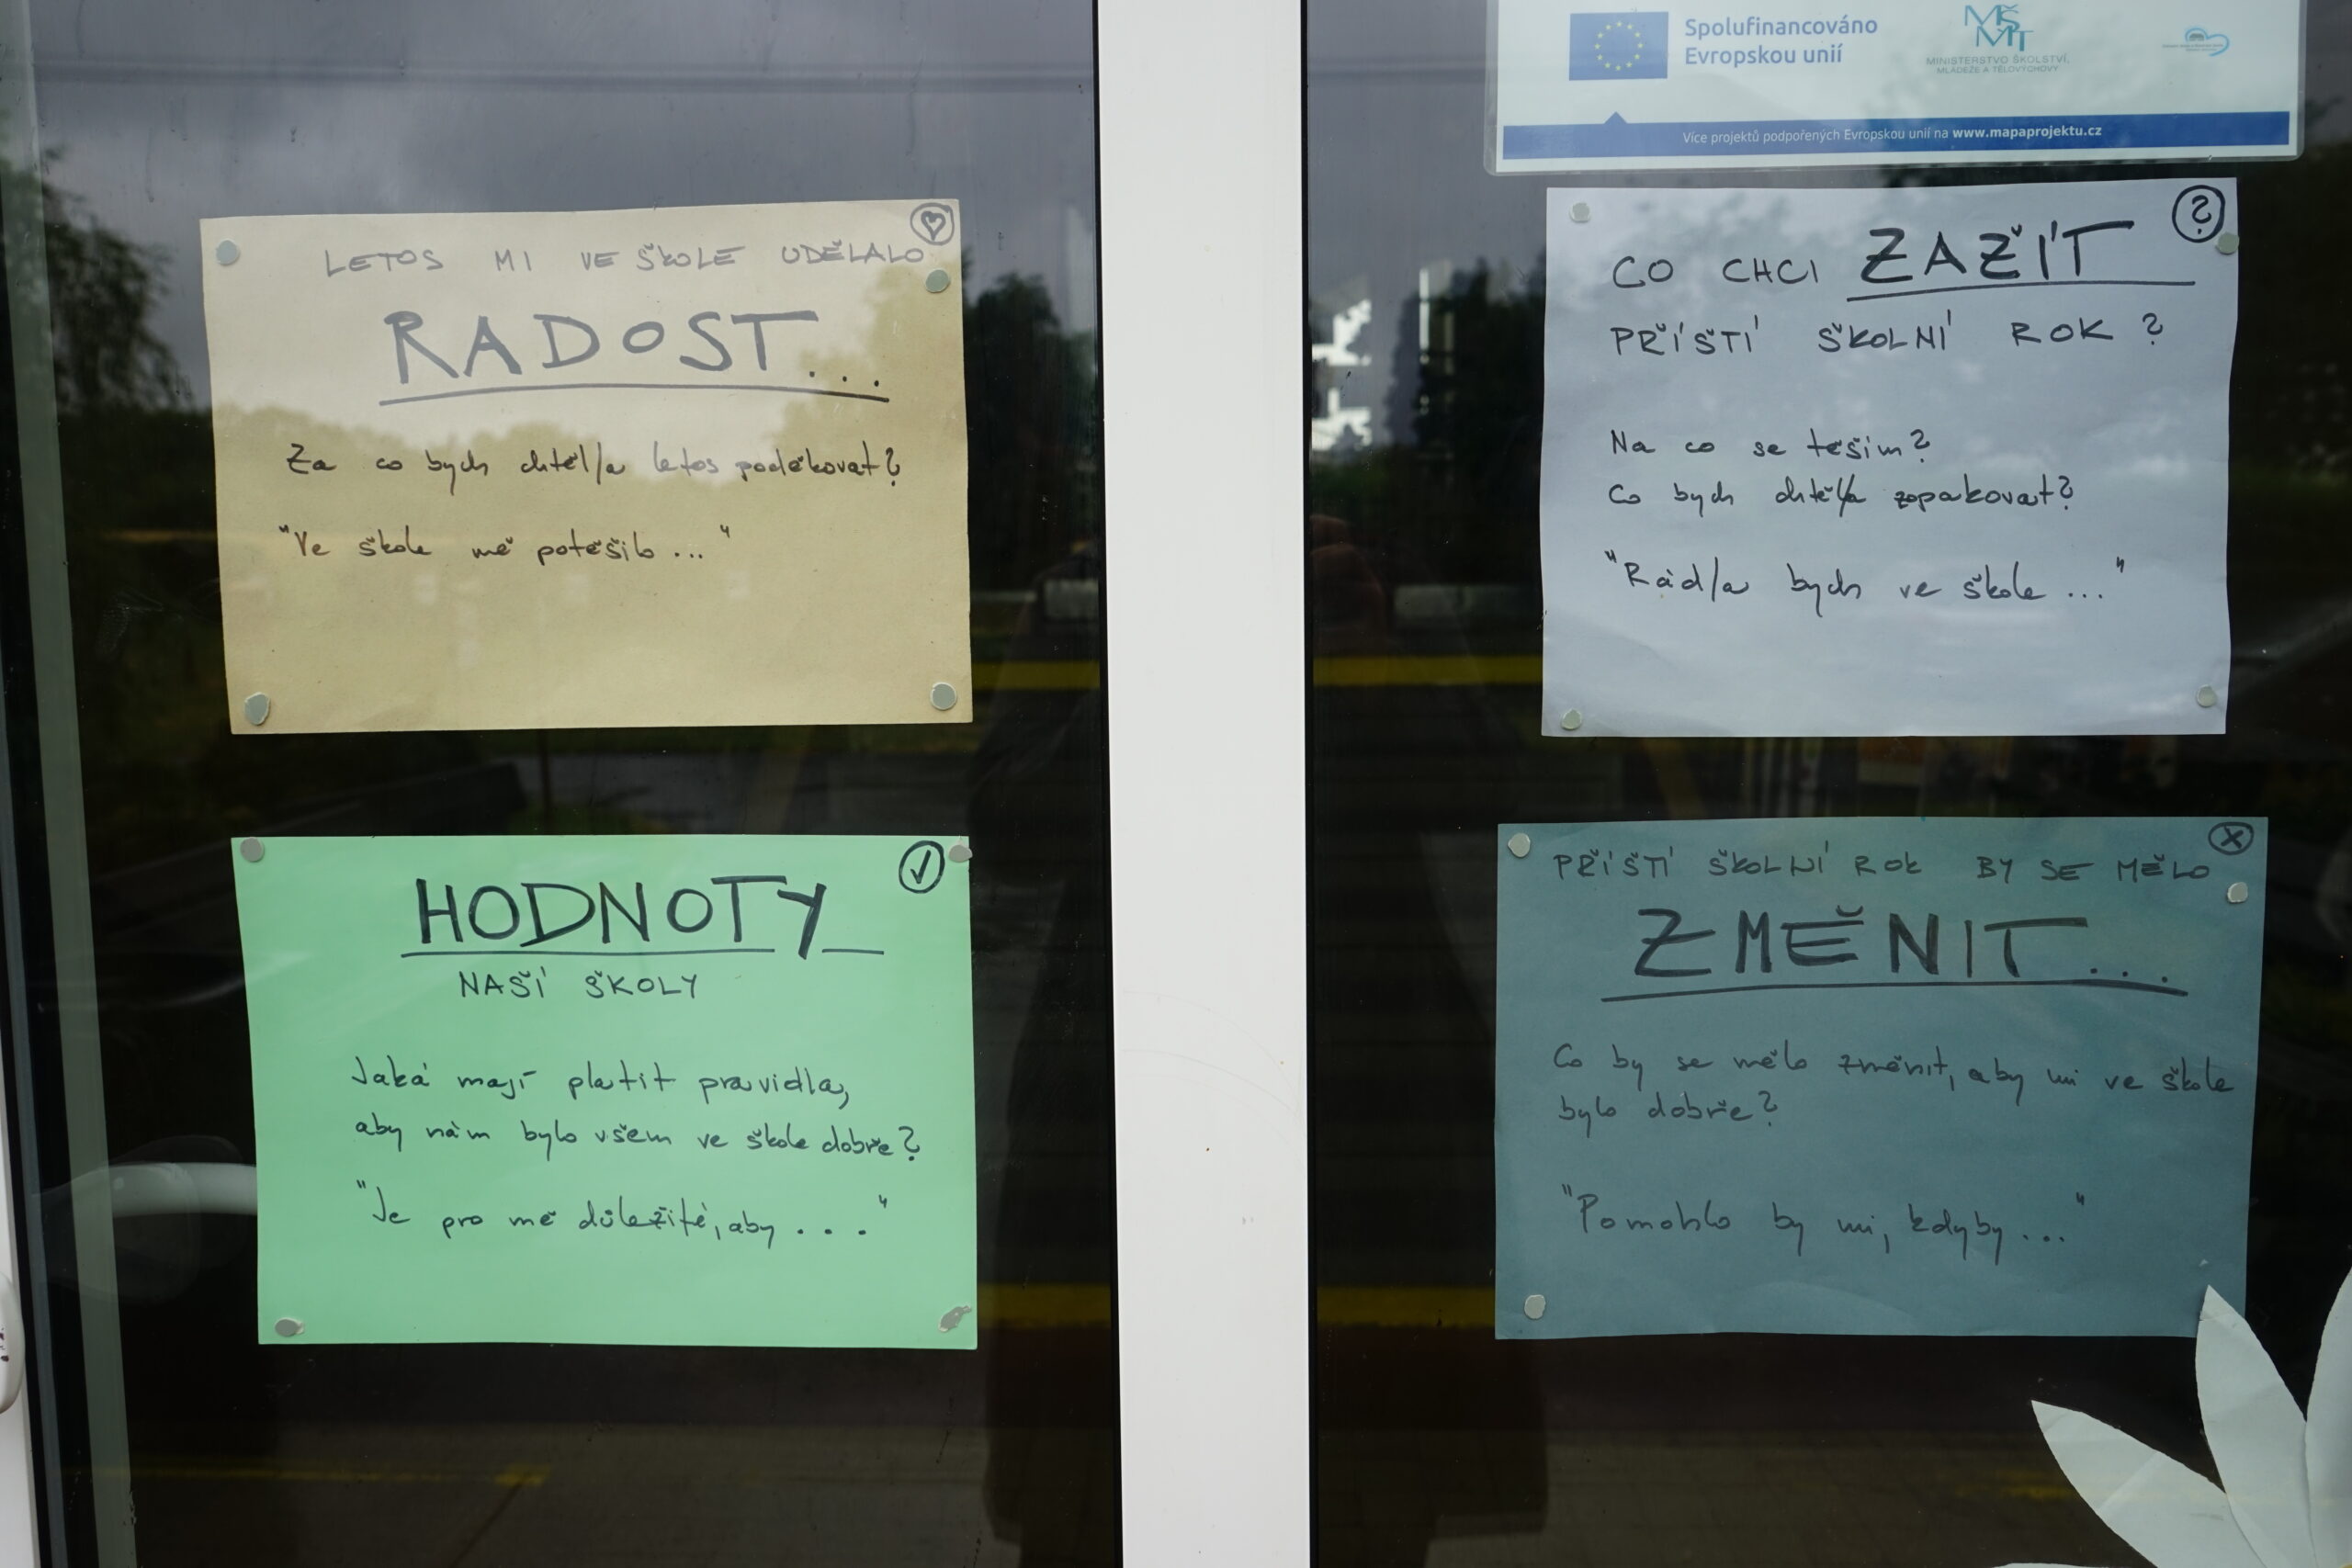 LETOS MI VE ŠKOLE UDĚLALO
RADOST...
Za co bych chtěl/a letos poděkovat?
"Ve škole mě potěšilo ..."
HODNOTY
NAŠÍ ŠKOLY
Jaká mají platit pravidla,
aby nám bylo všem ve škole dobře?
"Je pro mě důležité, aby ...."
Spolufinancováno
Evropskou unií
MŠMT
MINISTERSTVO ŠKOLSTVÍ,
MLÁDEŽE A TĚLOVÝCHOVY
Více projektů podpořených Evropskou unií na www.mapaprojektu.cz
?
CO CHCI ZAŽÍT
PŘÍŠTÍ ŠKOLNÍ ROK?
Na co se těším?
Co bych chtěl/a zopakovat?
"Rád/a bych ve škole ..."
PŘÍŠTÍ ŠKOLNÍ ROK BY SE MĚLO
ZMĚNIT...
Co by se mělo změnit, aby mi ve škole
bylo dobře?
"Pomohlo by mi, kdyby ..."